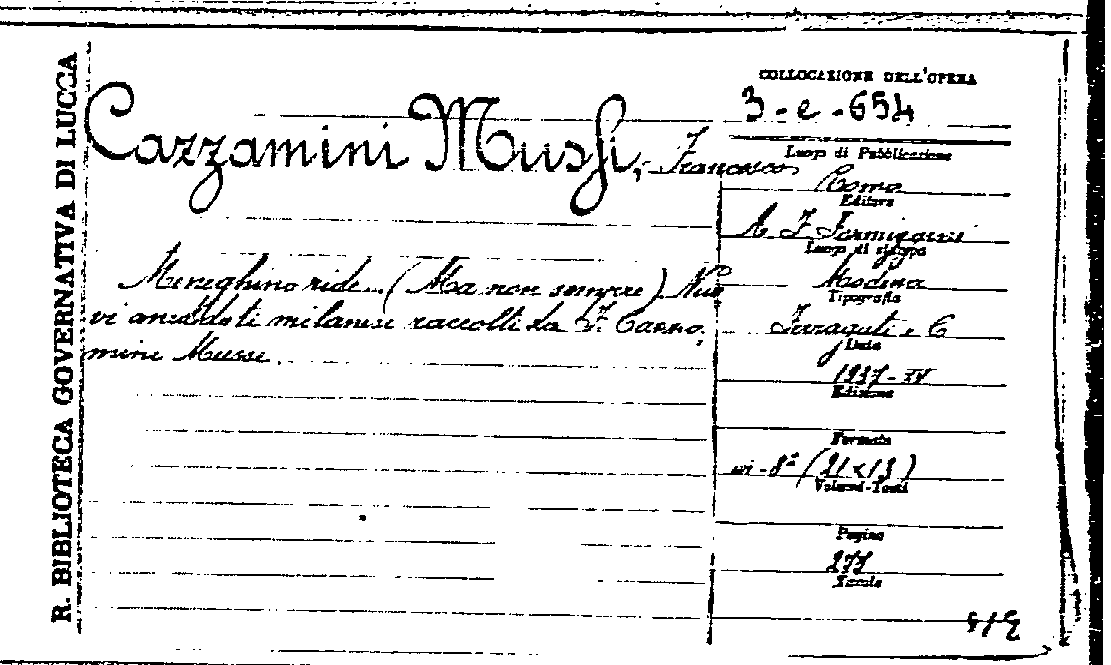 R. BIBLIOTECA GOVERNATIVA DI LUCCA
COLLOCAZIONE DELL'OPERA
3-e-654
Cazzamini Mussi, Francesco
Luogo di Pubblicazione
Roma
Editore
A. F. Formiggini
Luogo di stampa
Modena
Tipografia
Ferraguti e C
Data
1937-XV
Edizione
Formato
in-8° (21×13)
Volumi-Tomi
Pagine
277
Tavole
Meneghino ride... (Ma non sempre) Nuo
vi aneddoti milanesi raccolti da F. Cazza
mini Mussi.